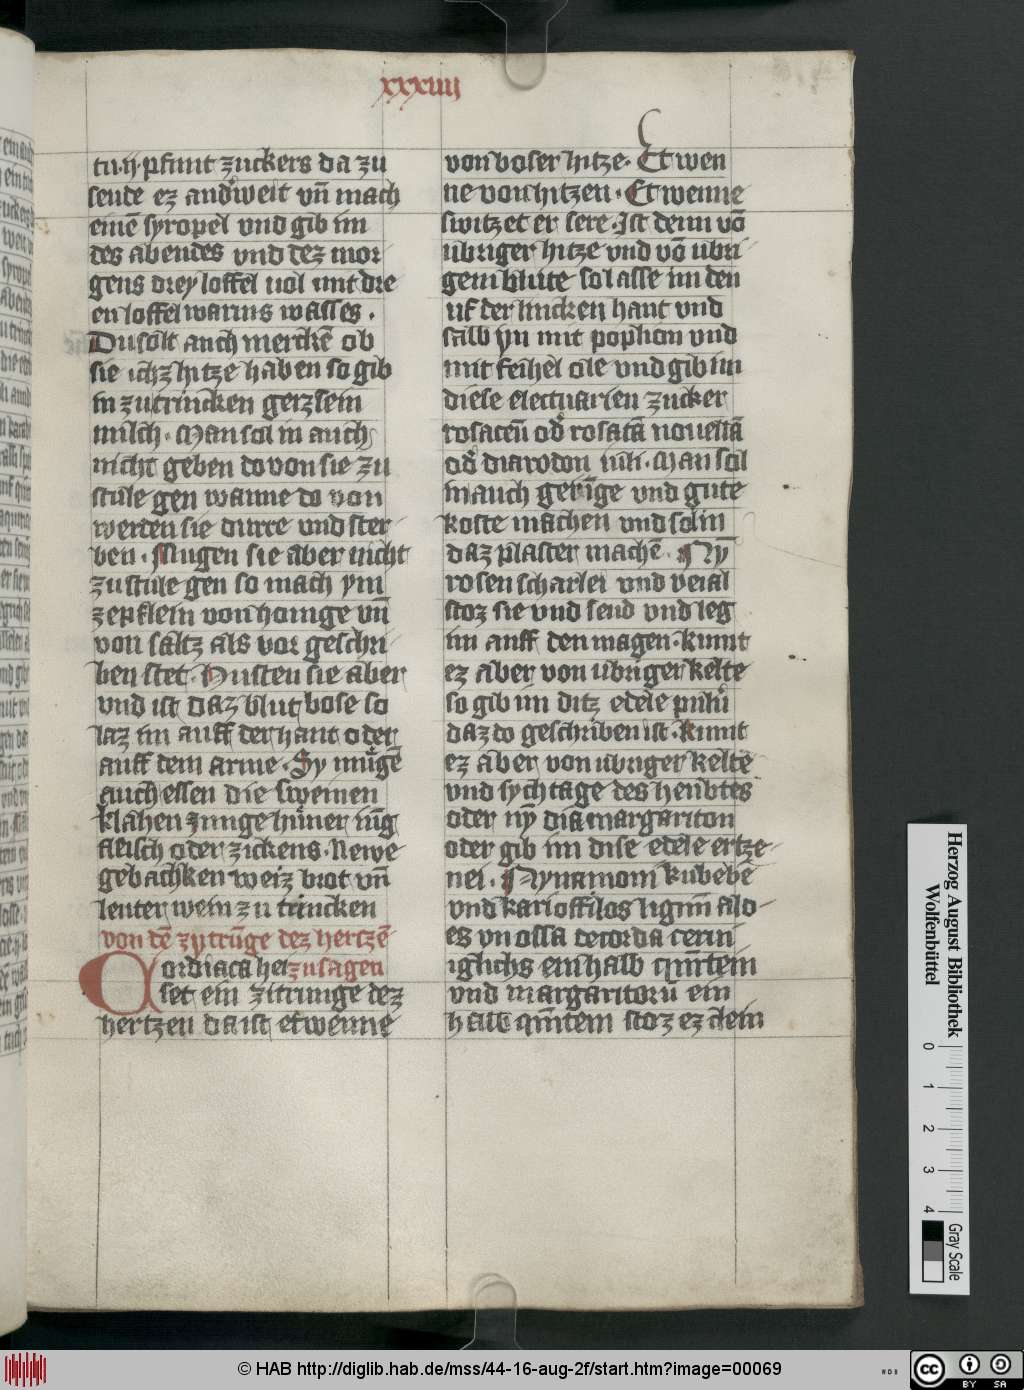 xxxiiij
tu ij pfunt zuckers da zu
seude ez and'weit vn̄ mach
einē syropel vnd gib im
des abendes vnd dez mor
gens drey loffel uol mit dre
en loffel warms wasses .
Du solt auch merckē ob
sie ichz hitze haben so gib
in zu trincken geizsein
milch . Man sol in auch
nicht geben do von sie zu
stule gen wanne do von
werden sie durre vnd ster
ben . Mugen sie aber nicht
zu stule gen so mach ym
zepflein von honige vn̄
von saltz als vor geschri
ben stet . Husten sie aber
vnd ist daz blut bose so
laz im auff der hant oder
auff dem arme . Sy mugē
auch essen die sweinen
klahen zunge huner iūg
fleisch oder zickens . Newe
gebachken weiz brot vn̄
leuter wein zu trincken
von dē zytrūge dez hertzē
Cordiaca hei zu sagen
set ein zitrunge dez
hertzen da ist etwenne
von boser hitze . Et wen
ne von hitzen . Et wenne
switzet er sere . Ist denn vō
ubriger hitze vnd vō ubri
gem blute so lasse im den
uf der lincken hant vnd
salb yn mit popilion vnd
mit feihel ole vnd gib im
diese electuarien zucker
rosaceū od' rosatā nouellā
od' diarodon iuli . Man sol
in auch geringe vnd gute
koste machen vnd sol in
daz plaster machē . Nȳ
rosen scharlei vnd veial
stoz sie vnd seud vnd leg
im auff den magen . kumt
ez aber von ubriger kelte
so gib im ditz edele pulu'
daz do geschriben ist . kumt
ez aber von ubriger kelte
vnd sychtage des heubtes
oder nȳ dia margariton
oder gib im dise edele ertze-
nei . Nȳ namom kubebē
vnd karioffilos lignm̄ alo-
es vn ossa decorda ceruí
iglichs ein halb qm̄tein
vnd margaritorū ein
halb qm̄tein stoz ez clein
Herzog August Bibliothek
Wolfenbüttel
0 1 2 3 4
Gray Scale
© HAB http://diglib.hab.de/mss/44-16-aug-2f/start.htm?image=00069
WDB
cc BY SA